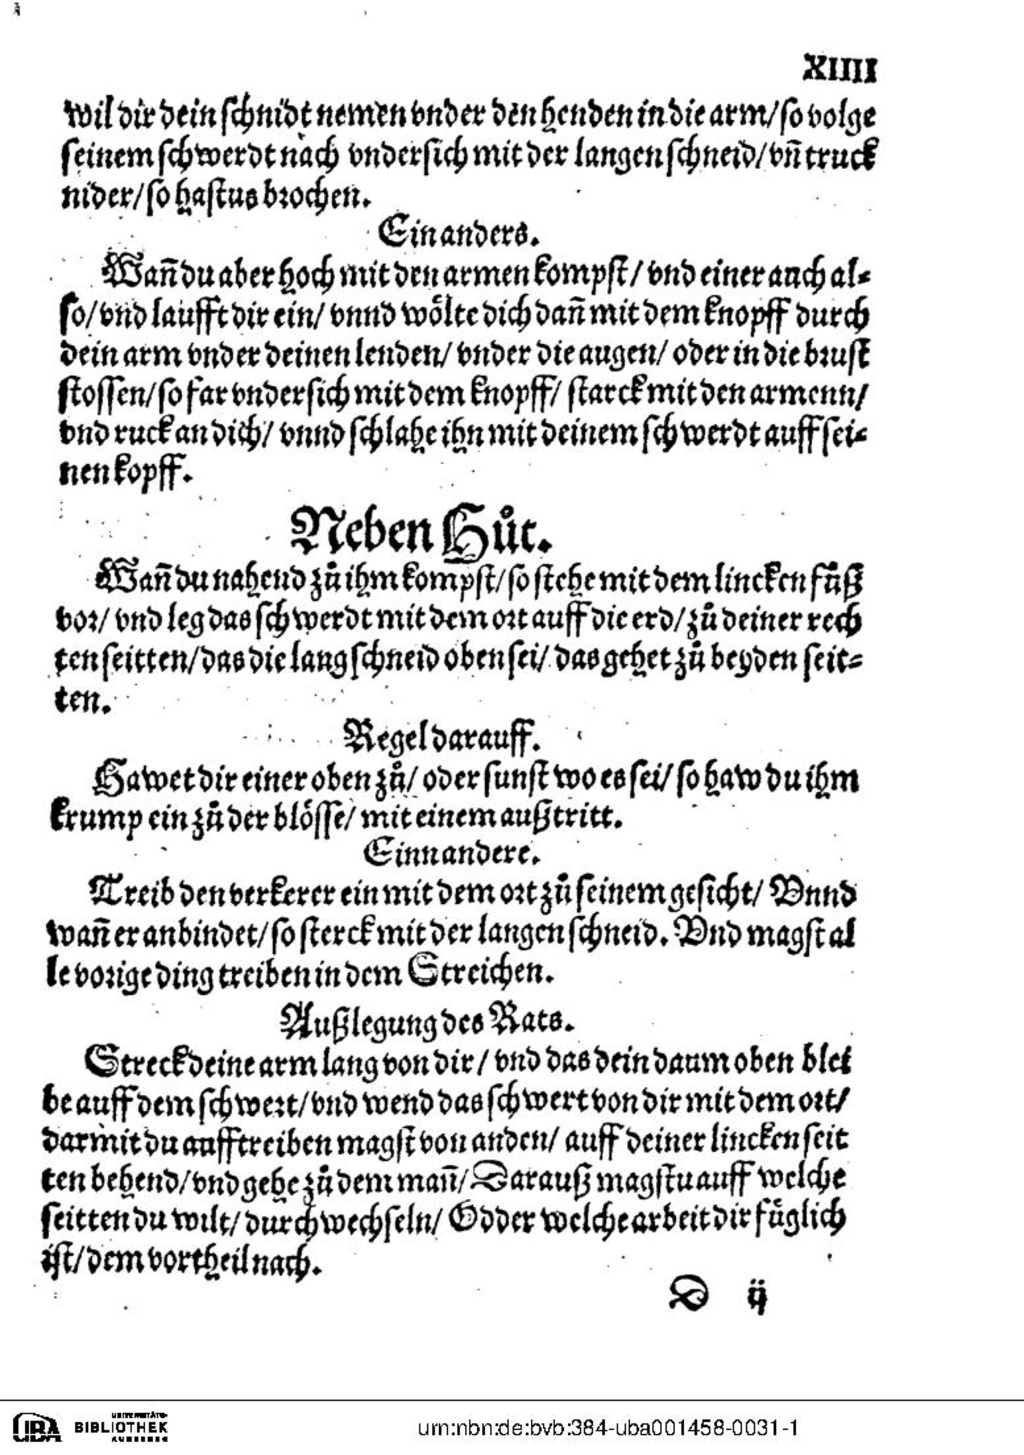 XIIII
wil dir dein schnidt nemen vnder den henden in die arm/ so volge
seinem schwerdt nach vndersich mit der langen schneid/ vñ truck
nider/ so hastus brochen.
Ein anders.
Wañ du aber hoch mit den armen kompst/ vnd einer auch al-
so/ vnd laufft dir ein/ vnnd wölte dich dañ mit dem knopff durch
dein arm vnder deinen lenden/ vnder die augen/ oder in die brust
stossen/ so far vndersich mit dem knopff/ starck mit den armenn/
vnd ruck an dich/ vnnd schlahe ihn mit deinem schwerdt auff sei-
nen kopff.
Neben Hůt.
Wañ du nahend zů ihm kompst/ so stehe mit dem lincken fůß
vor/ vnd leg das schwerdt mit dem ort auff die erd/ zů deiner rech
ten seitten/ das die lang schneid oben sei/ das gehet zů beyden seit-
ten.
Regel darauff.
Hawet dir einer oben zů/ oder sunst wo es sei/ so haw du ihm
krump ein zů der blösse/ mit einem außtritt.
Einn andere.
Treib den verkerer ein mit dem ort zů seinem gesicht/ Vnnd
wañ er anbindet/ so sterck mit der langen schneid. Vnd magst al
le vorige ding treiben in dem Streichen.
Außlegung des Rats.
Streck deine arm lang von dir/ vnd das dein daum oben blei
be auff dem schwert/ vnd wend das schwert von dir mit dem ort/
darmit du aufftreiben magst von anden/ auff deiner lincken seit
ten behend/ vnd gehe zů dem mañ/ Darauß magstu auff welche
seitten du wilt/ durchwechseln/ Odder welche arbeit dir füglich
ist/ dem vortheil nach.
D ij
UBA UNIVERSITÄTS-
BIBLIOTHEK
AUGSBURG
urn:nbn:de:bvb:384-uba001458-0031-1